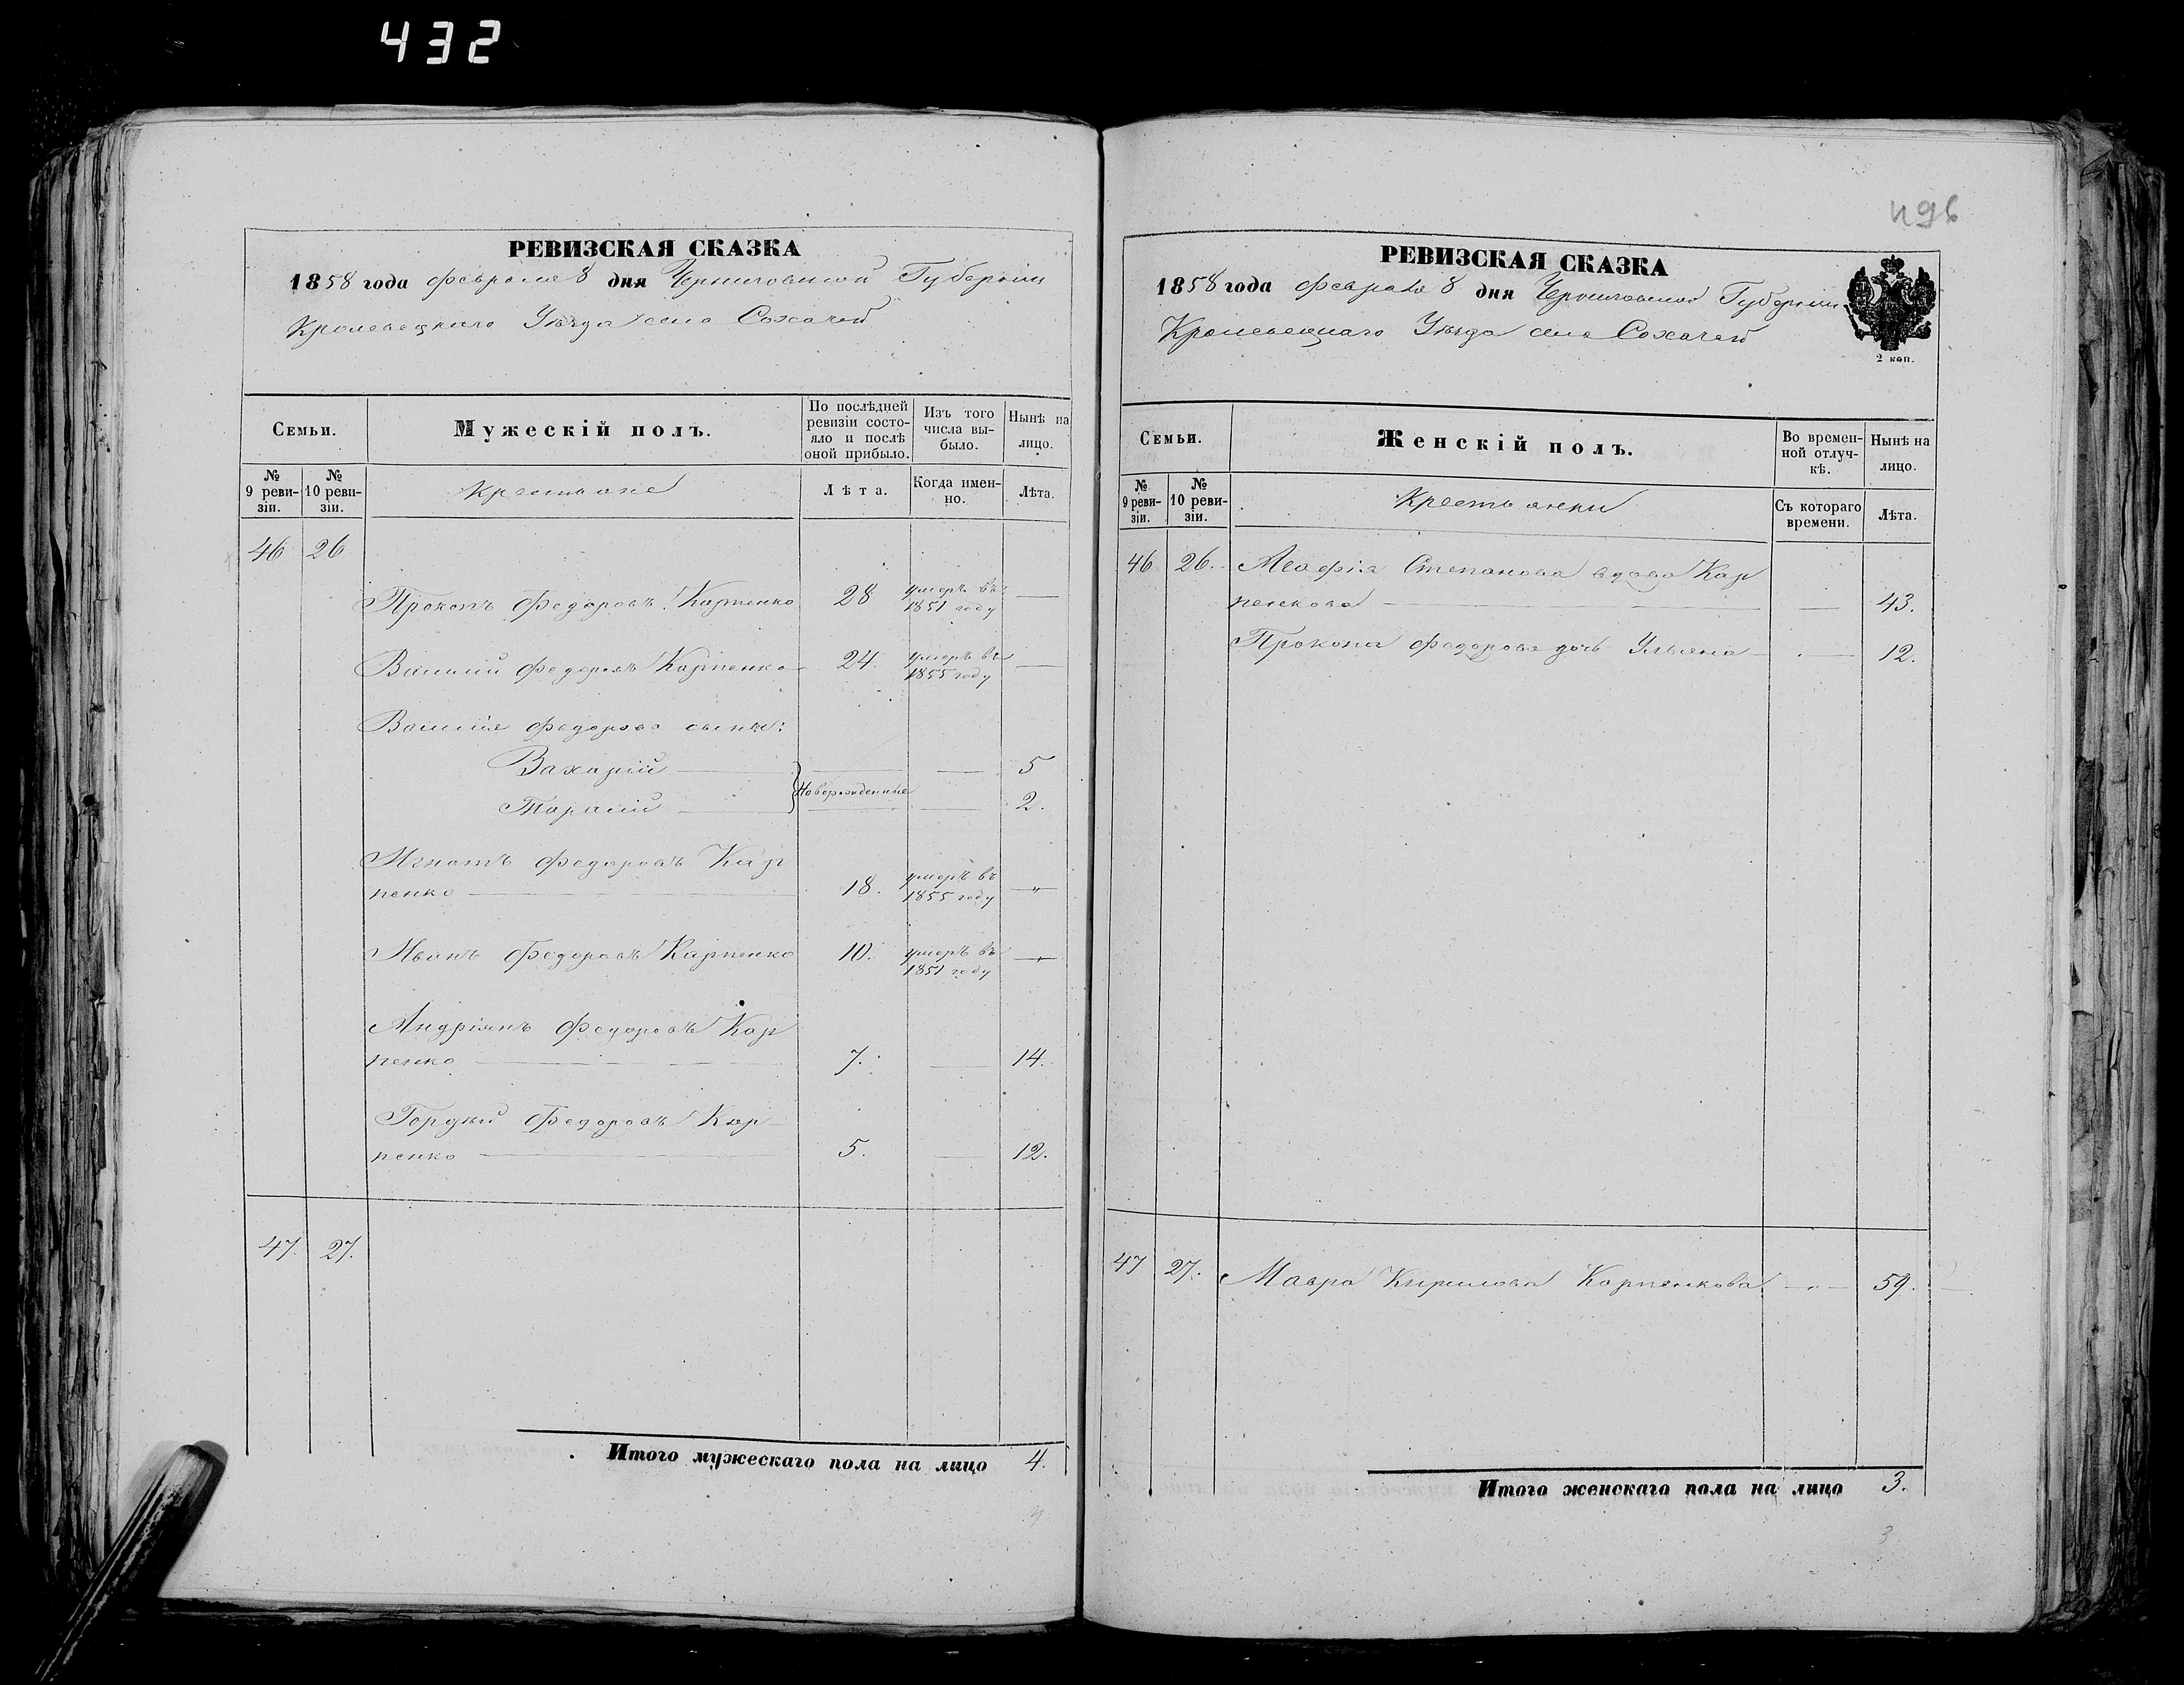 432
РЕВИЗСКАЯ СКАЗКА
1858 года февраля 8 дня Черниговской Губерніи
Кролевецкаго Уѣзда села Сохачей
Семьи.
Мужескій полъ.
По послѣдней
ревизіи состо-
яло и послѣ
оной прибыло.
Изъ того
числа вы-
было.
Нынѣ на
лицо.
№
9 реви-
зіи.
№
10 реви-
зіи.
Крестьяне
Лѣта.
Когда имен-
но.
Лѣта.
46 26
Прокопъ Федоровъ Карпенко 28 умеръ въ
1851 году
Василій Федоровъ Карпенко 24. умеръ въ
1855 году
Василія Федорова сынки:
Захарій 5
Новорожденные
Тарасій 2.
Игнатъ Федоровъ Кар
пенко 18. умеръ въ
1855 году
Иванъ Федоровъ Карпенко 10. умеръ въ
1851 году
Андріянъ Федоровъ Кар
пенко 7. 14.
Гордѣй Федоровъ Кар
пенко 5. 12.
47. 27.
Итого мужескаго пола на лицо 4.
496
РЕВИЗСКАЯ СКАЗКА
1858 года февраля 8 дня Черниговской Губерніи
Кролевецкаго Уѣзда села Сохачей
2 коп.
Семьи.
Женскій полъ.
Во времен-
ной отлуч-
кѣ.
Нынѣ на
лицо.
№
9 реви-
зіи.
№
10 реви-
зіи.
Крестьянки
Съ котораго
времени.
Лѣта.
46 26. Агафія Степанова вдова Кар
пенкова 43.
Прокопа Федорова дочь Ульяна 12.
47 27. Мавра Кирилова Карпенкова 59.
Итого женскаго пола на лицо 3.
3